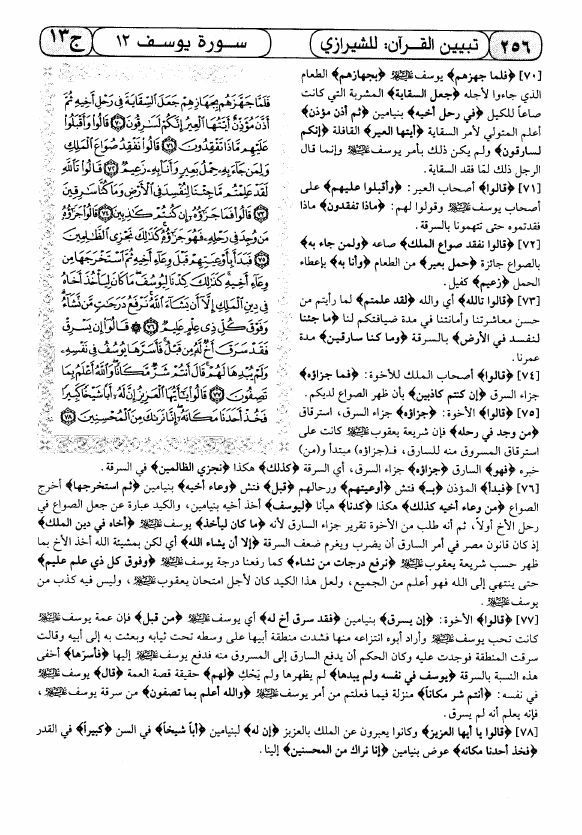 ٢٥٦
تبيين القرآن: للشيرازي
سورة يوسف ١٢
ج١٣
[٧٠] ﴿فلما جهزهم﴾ يوسف ﷺ ﴿بجهازهم﴾ الطعام
الذي جاءوا لأجله ﴿جعل السقاية﴾ المشربة التي كانت
صاعاً للكيل ﴿في رحل أخيه﴾ بنيامين ﴿ثم أذن مؤذن﴾
أعلم المتولي لأمر السقاية ﴿أيتها العير﴾ القافلة ﴿إنكم
لسارقون﴾ ولم يكن ذلك بأمر يوسف وإنما قال
الرجل ذلك لمّا فقد السقاية.
[٧١] ﴿قالوا﴾ أصحاب العير: ﴿وأقبلوا عليهم﴾ على
أصحاب يوسف وقولوا لهم: ﴿ماذا تفقدون﴾ ماذا
فقدتموه حتى تتهمونا بالسرقة.
[٧٢] ﴿قالوا نفقد صواع الملك﴾ صاعه ﴿ولمن جاء به﴾
بالصواع جائزة ﴿حمل بعير﴾ من الطعام ﴿وأنا به﴾ بإعطاء
الحمل ﴿زعيم﴾ كفيل.
[٧٣] ﴿قالوا تالله﴾ أي والله ﴿لقد علمتم﴾ لما رأيتم من
حسن معاشرتنا وأمانتنا في مدة ضيافتكم لنا ﴿ما جئنا
لنفسد في الأرض﴾ بالسرقة ﴿وما كنا سارقين﴾ مدة
عمرنا.
[٧٤] ﴿قالوا﴾ أصحاب الملك للأخوة: ﴿فما جزاؤه﴾
جزاء السرق ﴿إن كنتم كاذبين﴾ بأن ظهر الصواع لديكم.
[٧٥] ﴿قالوا﴾ الأخوة: ﴿جزاؤه﴾ جزاء السرق، استرقاق
﴿من وجد في رحله﴾ فإن شريعة يعقوب كانت على
استرقاق المسروق منه للسارق، فـ(جزاؤه) مبتدأ و(من)
خبره ﴿فهو﴾ السارق ﴿جزاؤه﴾ جزاء السرق، أي السرقة ﴿كذلك﴾ هكذا ﴿نجزي الظالمين﴾ في السرقة.
[٧٦] ﴿فبدأ﴾ المؤذن ﴿بـ﴾ فتش ﴿أوعيتهم﴾ ورحالهم ﴿قبل﴾ فتش ﴿وعاء أخيه﴾ بنيامين ﴿ثم استخرجها﴾ أخرج
الصواع ﴿من وعاء أخيه كذلك﴾ هكذا ﴿كدنا﴾ هيأنا ﴿ليوسف﴾ أخذ أخيه بنيامين، والكيد عبارة عن جعل الصواع في
رحل الأخ أولاً، ثم أنه طلب من الأخوة تقرير جزاء السارق لأنه ﴿ما كان ليأخذ﴾ يوسف ﴿أخاه في دين الملك﴾
إذ كان قانون مصر في أمر السارق أن يضرب ويغرم ضعف السرقة ﴿إلا أن يشاء الله﴾ أي لكن بمشيئة الله أخذ الأخ بما
ظهر حسب شريعة يعقوب ﴿نرفع درجات من نشاء﴾ كما رفعنا درجة يوسف ﴿وفوق كل ذي علم عليم﴾
حتى ينتهي إلى الله فهو أعلم من الجميع، ولعل هذا الكيد كان لأجل امتحان يعقوب، وليس فيه كذب من
يوسف.
[٧٧] ﴿قالوا﴾ الأخوة: ﴿إن يسرق﴾ بنيامين ﴿فقد سرق أخ له﴾ أي يوسف ﴿من قبل﴾ فإن عمة يوسف
كانت تحب يوسف وأراد أبوه انتزاعه منها فشدت منطقة أبيها على وسطه تحت ثيابه وبعثت به إلى أبيه وقالت
سرقت المنطقة فوجدت عليه وكان الحكم أن يدفع السارق إلى المسروق منه فدفع يوسف إليها ﴿فأسرّها﴾ أخفى
هذه النسبة بالسرقة ﴿يوسف في نفسه ولم يبدها﴾ لم يظهرها ولم يَحْكِ ﴿لهم﴾ حقيقة قصة العمة ﴿قال﴾ يوسف
في نفسه: ﴿أنتم شر مكاناً﴾ منزلة فيما فعلتم من أمر يوسف ﴿والله أعلم بما تصفون﴾ من سرقة يوسف،
فإنه يعلم أنه لم يسرق.
[٧٨] ﴿قالوا يا أيها العزيز﴾ وكانوا يعبرون عن الملك بالعزيز ﴿إن له﴾ لبنيامين ﴿أباً شيخاً﴾ في السن ﴿كبيراً﴾ في القدر
﴿فخذ أحدنا مكانه﴾ عوض بنيامين ﴿إنا نراك من المحسنين﴾ إلينا.
فَلَمَّا جَهَّزَهُم بِجَهَازِهِمْ جَعَلَ السِّقَايَةَ فِي رَحْلِ أَخِيهِ ثُمَّ
أَذَّنَ مُؤَذِّنٌ أَيَّتُهَا الْعِيرُ إِنَّكُمْ لَسَارِقُونَ ٧٠ قَالُوا وَأَقْبَلُوا
عَلَيْهِم مَّاذَا تَفْقِدُونَ ٧١ قَالُوا نَفْقِدُ صُوَاعَ الْمَلِكِ
وَلِمَن جَاءَ بِهِ حِمْلُ بَعِيرٍ وَأَنَا بِهِ زَعِيمٌ ٧٢ قَالُوا تَاللَّهِ
لَقَدْ عَلِمْتُم مَّا جِئْنَا لِنُفْسِدَ فِي الْأَرْضِ وَمَا كُنَّا سَارِقِينَ
٧٣ قَالُوا فَمَا جَزَاؤُهُ إِن كُنتُمْ كَاذِبِينَ ٧٤ قَالُوا جَزَاؤُهُ
مَن وُجِدَ فِي رَحْلِهِ فَهُوَ جَزَاؤُهُ كَذَلِكَ نَجْزِي الظَّالِمِينَ
٧٥ فَبَدَأَ بِأَوْعِيَتِهِمْ قَبْلَ وِعَاءِ أَخِيهِ ثُمَّ اسْتَخْرَجَهَا مِن
وِعَاءِ أَخِيهِ كَذَلِكَ كِدْنَا لِيُوسُفَ مَا كَانَ لِيَأْخُذَ أَخَاهُ
فِي دِينِ الْمَلِكِ إِلَّا أَن يَشَاءَ اللَّهُ نَرْفَعُ دَرَجَاتٍ مَّن نَّشَاءُ
وَفَوْقَ كُلِّ ذِي عِلْمٍ عَلِيمٌ ٧٦ قَالُوا إِن يَسْرِقْ
فَقَدْ سَرَقَ أَخٌ لَّهُ مِن قَبْلُ فَأَسَرَّهَا يُوسُفُ فِي نَفْسِهِ
وَلَمْ يُبْدِهَا لَهُمْ قَالَ أَنتُمْ شَرٌّ مَّكَانًا وَاللَّهُ أَعْلَمُ بِمَا
تَصِفُونَ ٧٧ قَالُوا يَا أَيُّهَا الْعَزِيزُ إِنَّ لَهُ أَبًا شَيْخًا كَبِيرًا
فَخُذْ أَحَدَنَا مَكَانَهُ إِنَّا نَرَاكَ مِنَ الْمُحْسِنِينَ ٧٨